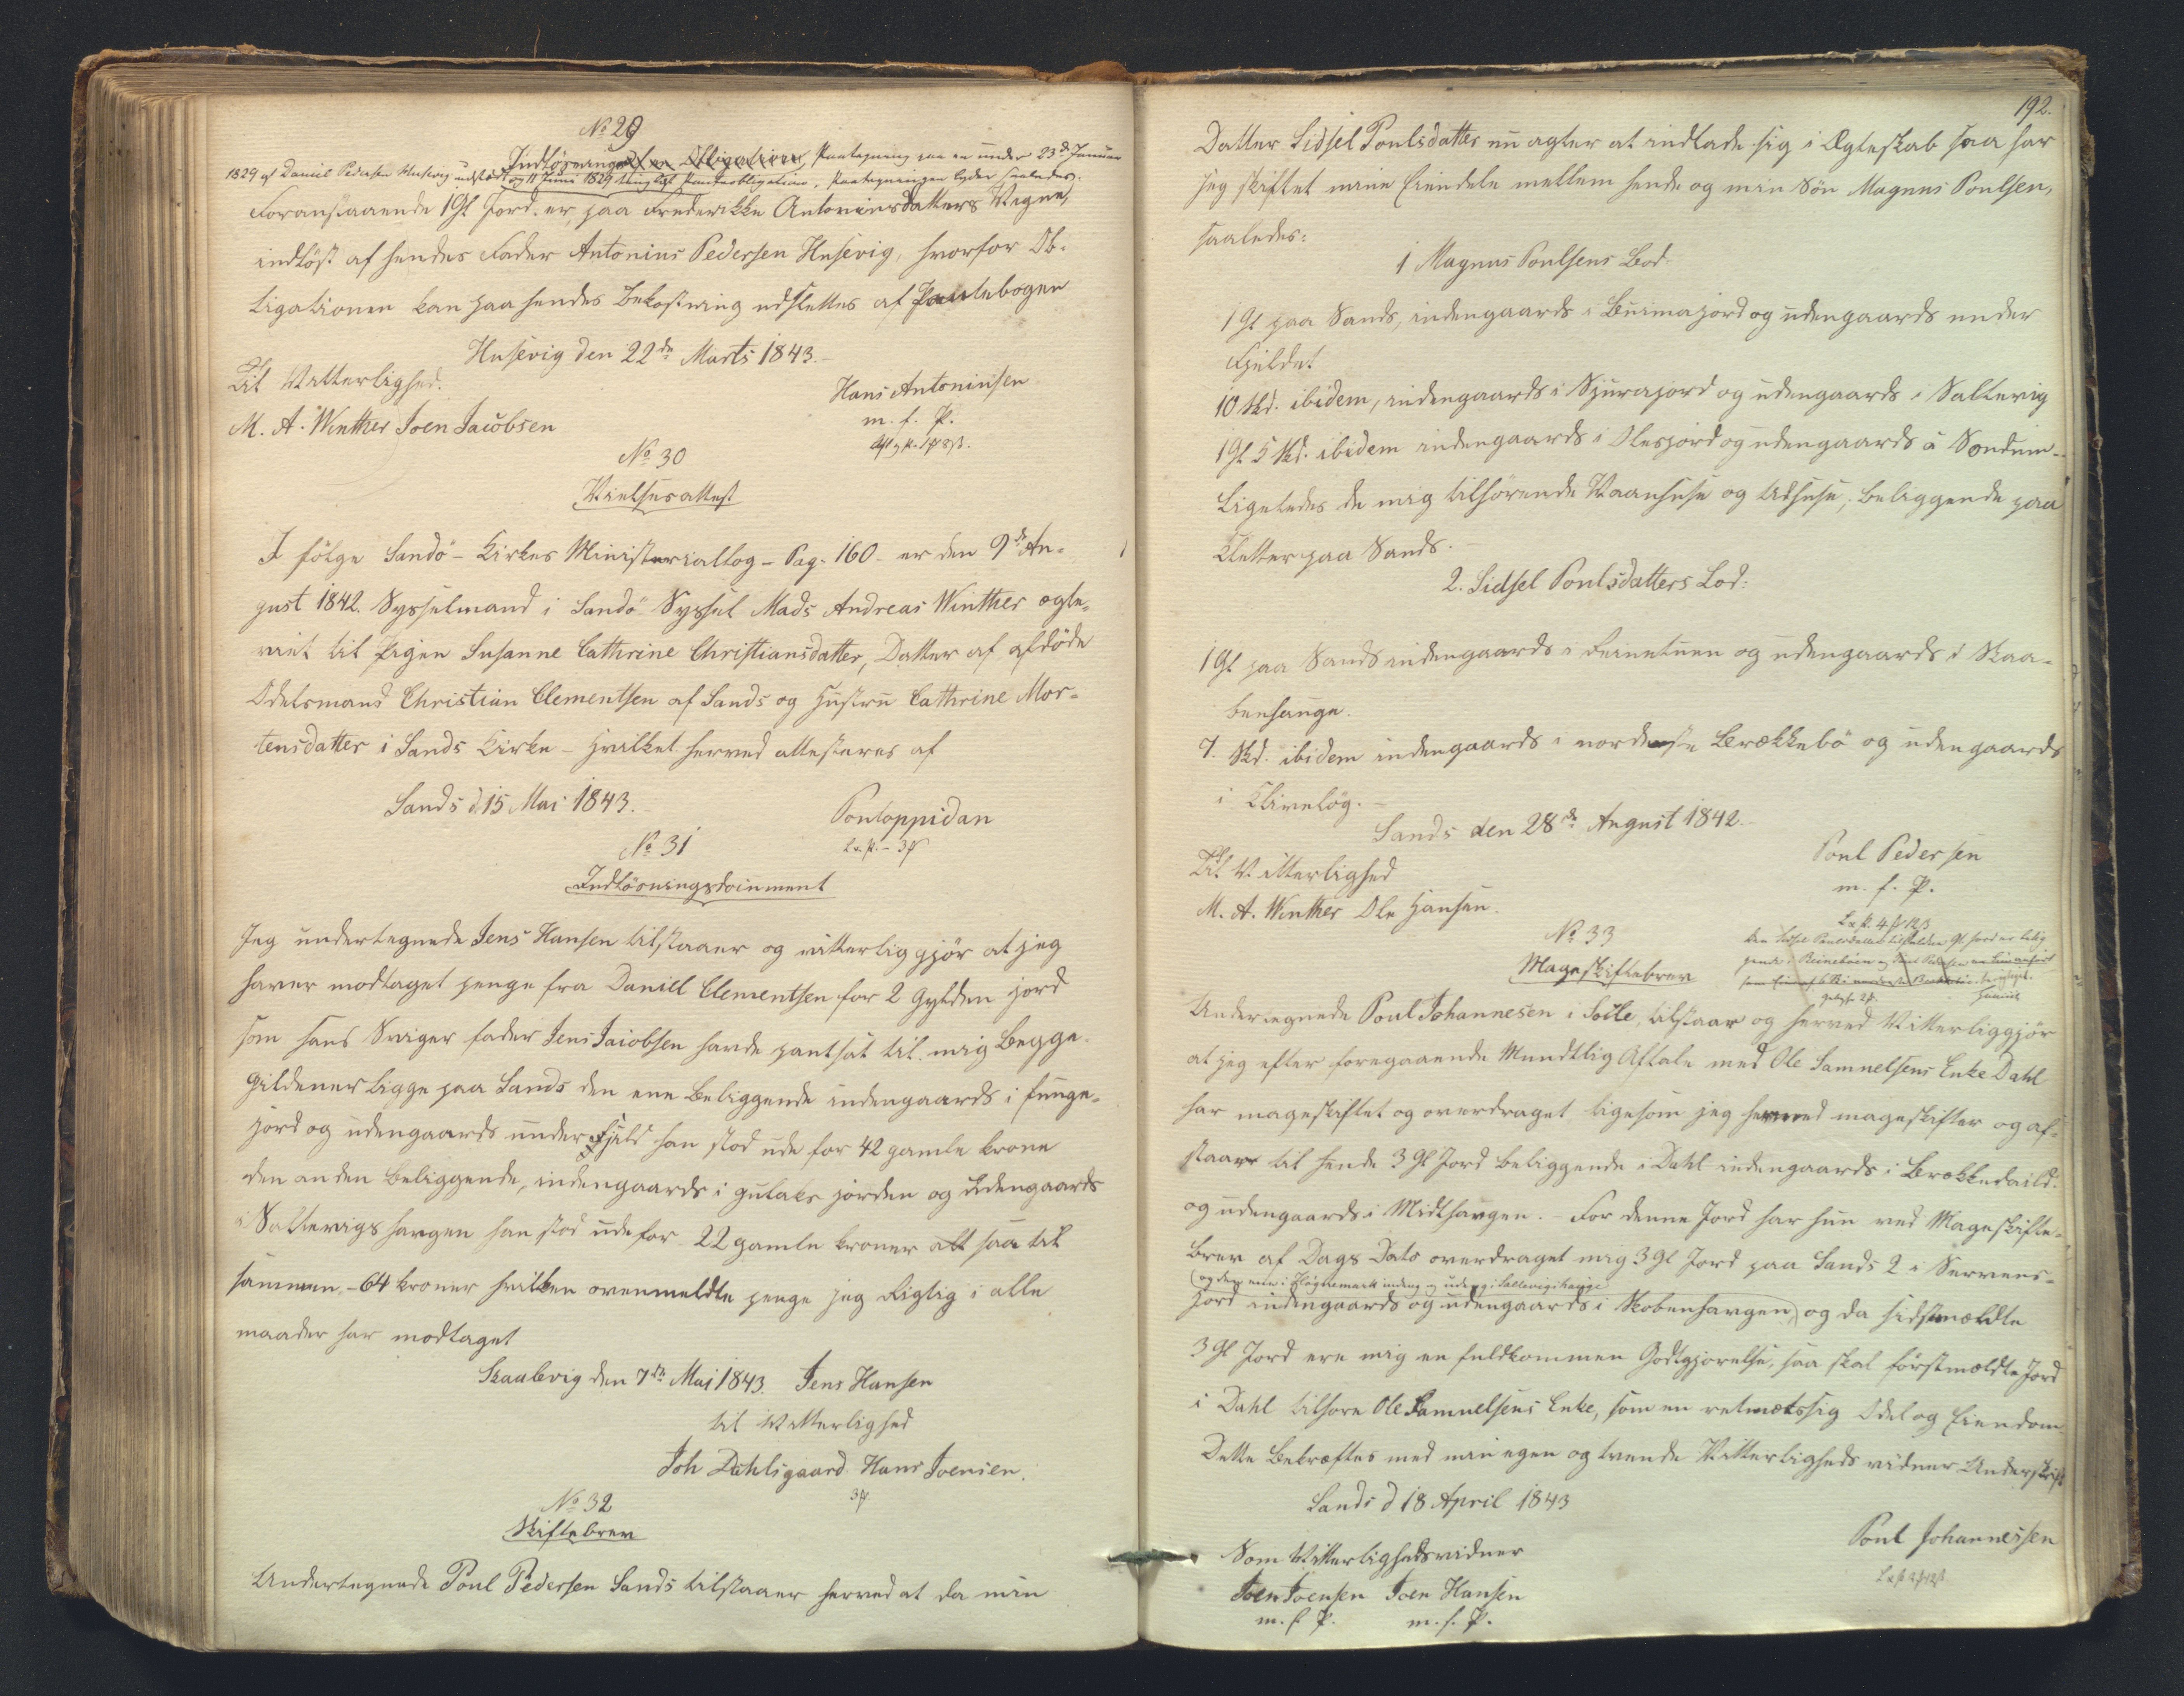 No 29
Indløsning af en Obligation, Paategning paa en under 23de Januar
1829 af Daniel Pedersen Husevig udstedt og 11 Juni 1829 tinglæst Panteobligation, Paategningen lyder saaledes.
Foranstaaende 1 Gl Jord er paa Frederikke Antoniusdatters Vegne,
indløst af hendes Fader Antonius Pedersen Husevig, hvorfor Ob-
ligationen kan paa hendes Bekostning udslettes af Pantebogen
Husevig den 22de Marts 1843.
Til Vitterlighed.
Hans Antoniusen
M. A. Winther Joen Jacobsen
m. f. P.
No 30
Vielsesattest
I følge Sandø-Kirkes Ministerialbog - Pag. 160 - er den 9de Au-
gust 1842. Sysselmand i Sandø Syssel Mads Andreas Winther ægte-
viet til Pigen Susanne Cathrine Christiansdatter, Datter af afdøde
Odelsmand Christian Clementsen af Sands og Hustru Cathrine Mor-
tensdatter i Sands Kirke - hvilket herved attesteres af
Sands d. 15 Mai 1843.
Pontoppidan
No 31
Indløsningsdocument
Jeg undertegnede Jens Hansen tilstaaer og vitterliggjør at jeg
haver modtaget penge fra Daniel Clementsen for 2 Gylden jord
som hans Sviger fader Jens Jacobsen havde pantsat til mig Begge
Gildener ligge paa Sands den ene Beliggende indengaards i funge-
jord og udengaards under Fjeld han stod ude for 42 gamle krone
den anden Beliggende, indengaards i gutaks jorden og Udengaards
i Saltevigs haugen han stod ude for 22 gamle kroner alt saa til
sammen - 64 kroner hvilken ovenmeldte penge jeg Rigtig i alle
maader har modtaget
Skaalevig den 7de Mai 1843. Jens Hansen
til Vitterlighed
Joh Dahlsgaard. Hans Joensen.
No 32
Skiftebrev
Undertegnede Poul Pedersen Sands tilstaaer herved at da min
192.
Datter Sidsel Poulsdatter nu agter at indlade sig i Ægteskab saa har
jeg skiftet mine Eiendele mellem hende og min Søn Magnus Poulsen,
saaledes:
1 Magnus Poulsens Lod.
1 Gl paa Sands, indengaards i Buimajord og udengaards under
Fjeldet
10 Skd. ibidem, indengaards i Sjurajord og udengaards i Saltevig
1 Gl 5 Skd. ibidem indengaards i Olesjord og udengaards á Sondum
Ligeledes de mig tilhørende Vaanhuse og Udhuse, beliggende paa
Kletter paa Sands.
2. Sidsel Poulsdatters Lod:
1 Gl paa Sands indengaards i Reinetuen og udengaards i Skaa-
benhauge.
7. Skd. ibidem indengaards i nordenste Brækkebø og udengaards
i Kliveløg.
Sands den 28de August 1842.
Poul Pedersen
Til Vitterlighed
m. f. P.
M. A. Winther Ole Hansen.
No 33
Mageskiftebrev
Undertegnede Poul Johannesen i Sole, tilstaar og herved Vitterliggjør
at jeg efter foregaaende Mundtlig Aftale med Ole Samuelsens Enke Dahl
har mageskiftet og overdraget ligesom jeg herved mageskifter og af-
staar til hende 3 Gl Jord beliggende i Dahl indengaards i Brekkedaild.
og udengaards i Midthaugen. - For denne Jord har hun ved Mageskifte-
Brev af Dags Dato overdraget mig 3 Gl Jord paa Sands 2 i Servens-
(og den ene i Høgnemark indeng. og udeng. i Saltevigshauge
Jord indengaards og udengaards i Skobenhaugen) og da sidstmældte
3 Gl Jord ere mig en fuldkommen Godtgjørelse, saa skal førstmældte Jord
i Dahl tilhøre Ole Samuelsens Enke, som en retmæssig Odel og Eiendom
Dette Bekræftes med min egen og tvende Vitterligheds vidner Underskrift
Sands d 18 April 1843
Poul Johannessen
Som Vitterlighedsvidner
Joen Joensen Joen Hansen
m. f. P. m. f. P.